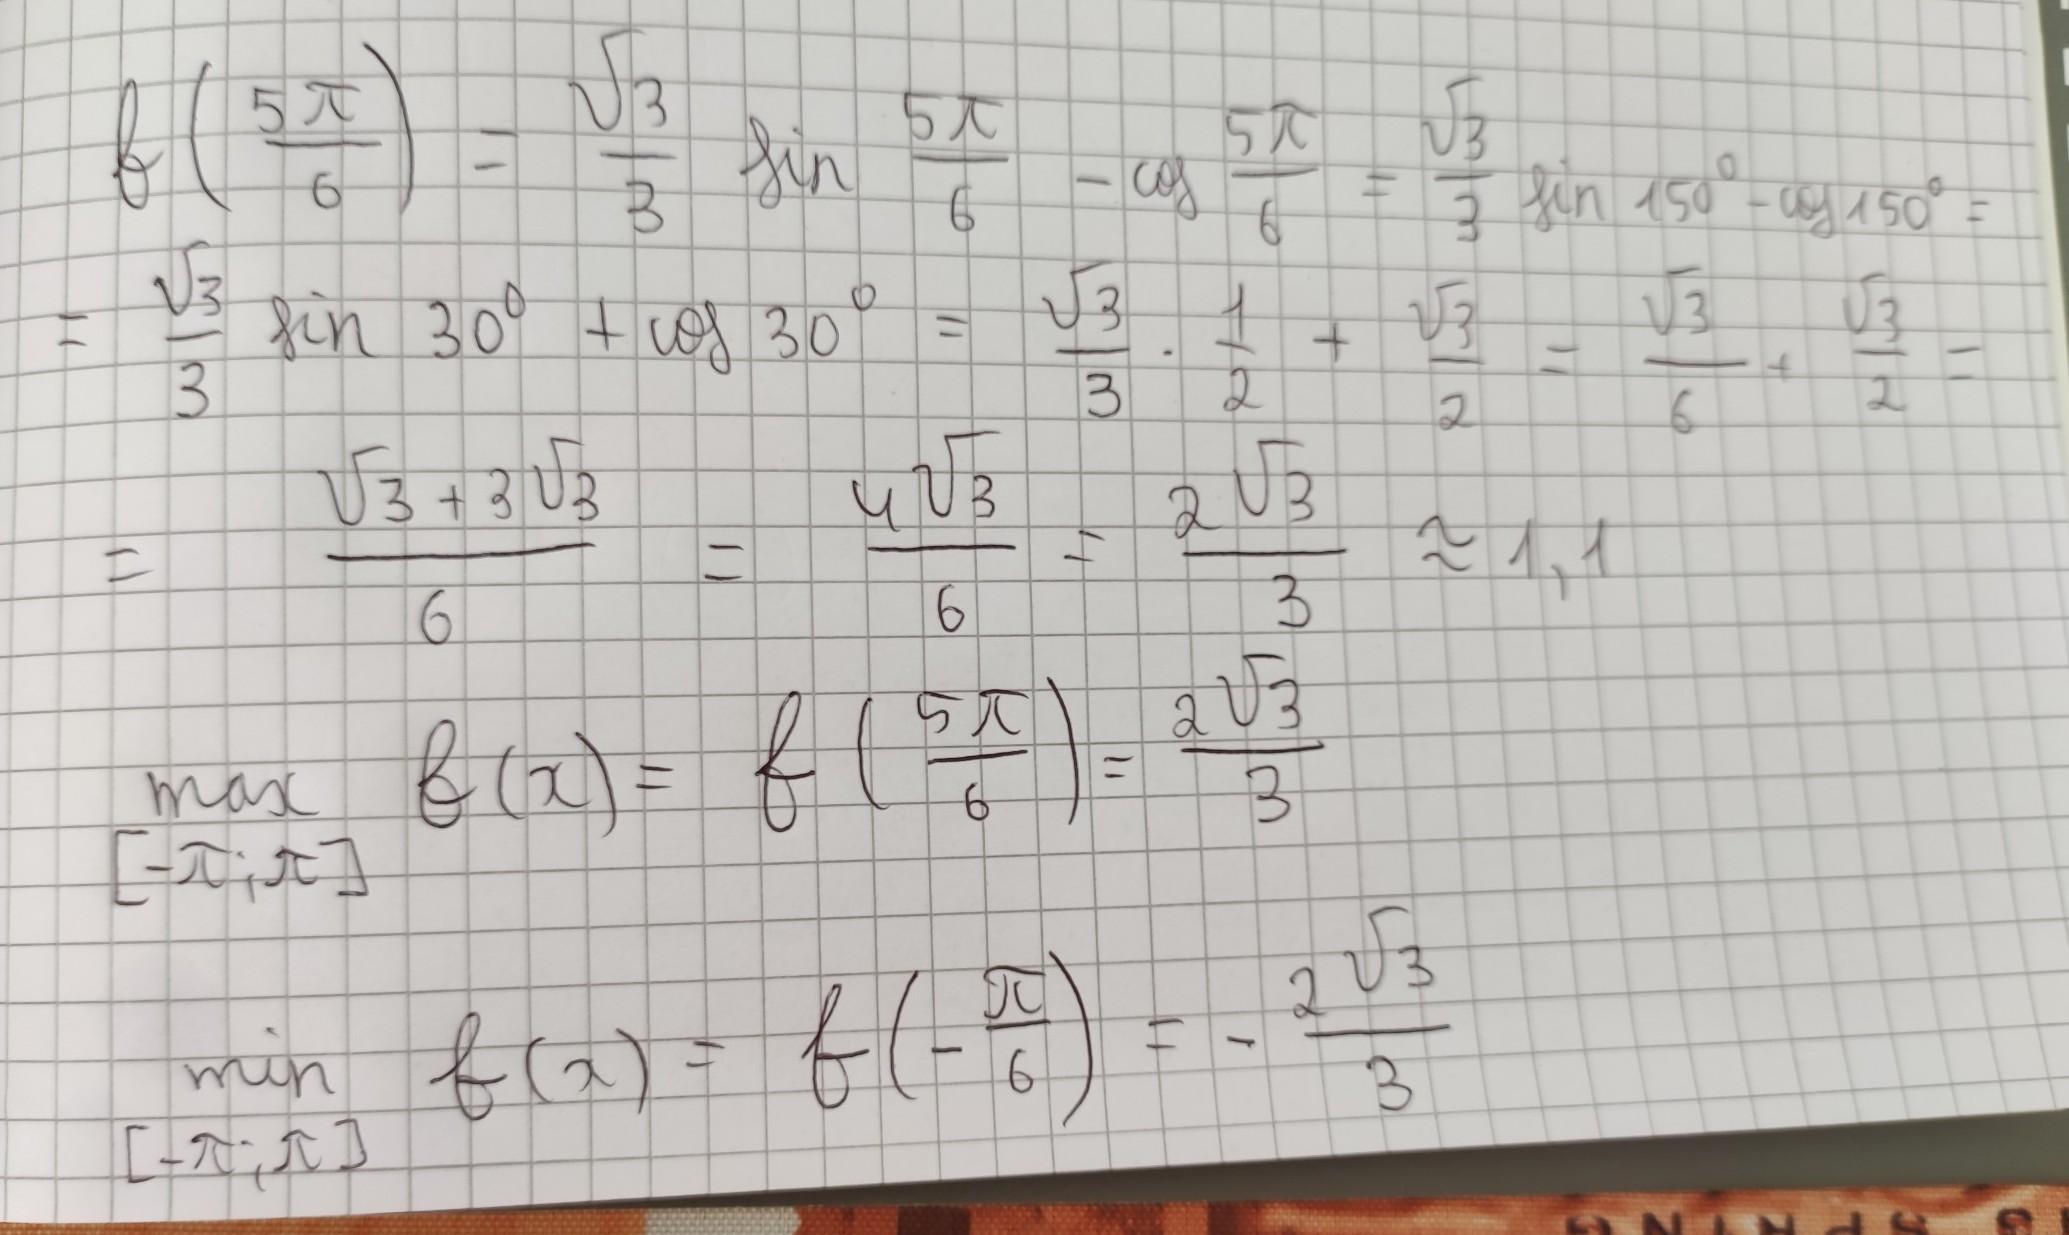 f(5π/6) = √3/3 sin 5π/6 - cos 5π/6 = √3/3 sin 150° - cos 150° =
= √3/3 sin 30° + cos 30° = √3/3 · 1/2 + √3/2 = √3/6 + √3/2 =
= (√3 + 3√3)/6 = 4√3/6 = 2√3/3 ≈ 1,1
max f(x) = f(5π/6) = 2√3/3
[-π; π]
min f(x) = f(-π/6) = - 2√3/3
[-π; π]